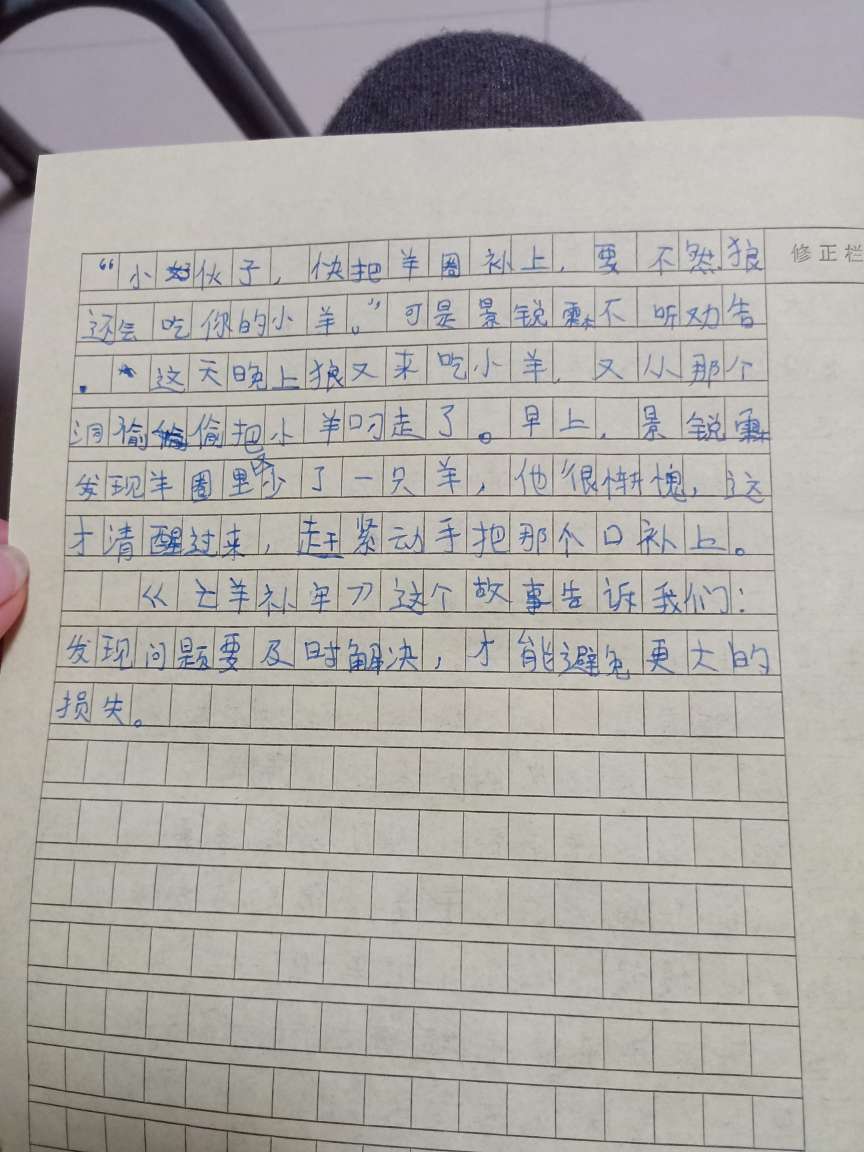 修正栏
“小伙子，快把羊圈补上，要不然狼
还会吃你的小羊。”可是景锐霖不听劝告
．这天晚上狼又来吃小羊，又从那个
洞偷偷把小羊叼走了。早上，景锐霖
发现羊圈里少了一只羊，他很惭愧，这
才清醒过来，赶紧动手把那个口补上。
《亡羊补牢》这个故事告诉我们：
发现问题要及时解决，才能避免更大的
损失。